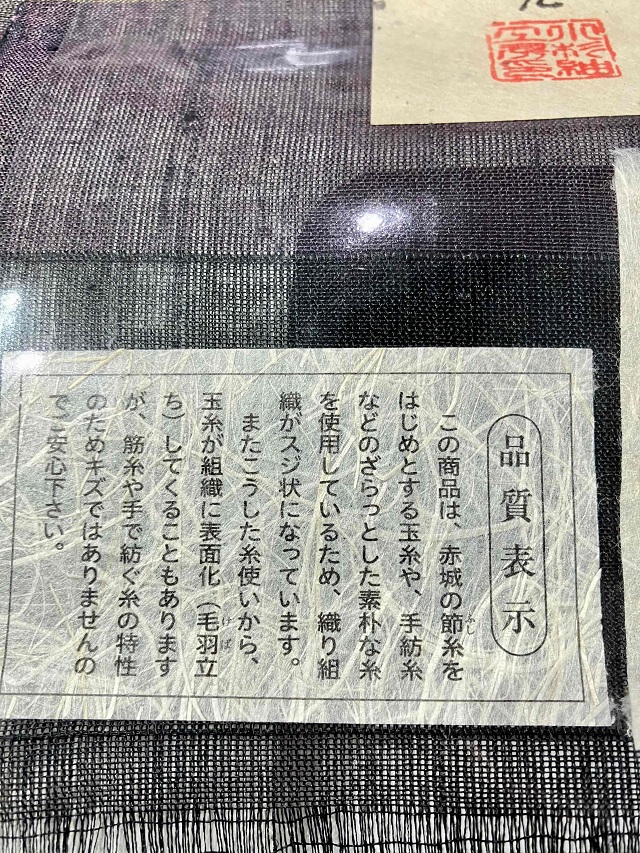 品質表示
この商品は、赤城の節糸を
ふし
はじめとする玉糸や、手紡糸
などのざらっとした素朴な糸
を使用しているため、織り組
織がスジ状になっています。
またこうした糸使いから、
玉糸が組織に表面化（毛羽立
けば
ち）してくることもあります
が、筋糸や手で紡ぐ糸の特性
のためキズではありませんの
でご安心下さい。